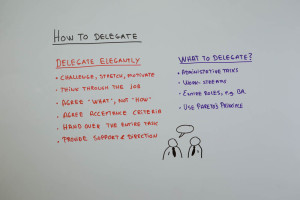 HOW TO DELEGATE
DELEGATE ELEGANTLY
• CHALLENGE, STRETCH, MOTIVATE
• THINK THROUGH THE JOB
• AGREE "WHAT", NOT "HOW"
• AGREE ACCEPTANCE CRITERIA
• HAND OVER THE ENTIRE TASK
• PROVIDE SUPPORT & DIRECTION
WHAT TO DELEGATE?
• ADMINISTRATIVE TASKS
• WORK STREAMS
• ENTIRE ROLES, E.G. QA
• USE PARETO'S PRINCIPLE